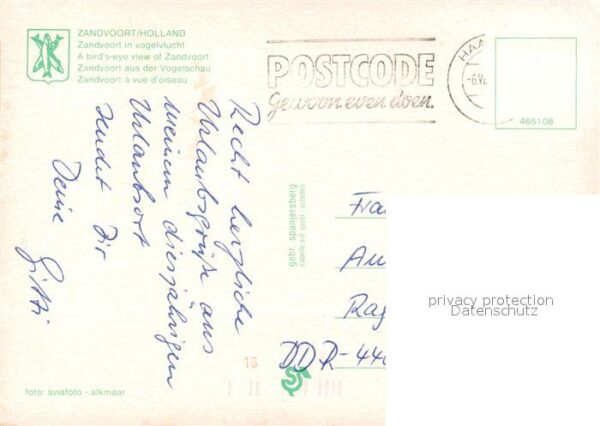 ZANDVOORT/HOLLAND
Zandvoort in vogelvlucht
A bird's-eye view of Zandvoort
Zandvoort aus der Vogelschau
Zandvoort à vue d'oiseau
POSTCODE
Gewoon even doen.
HAA
-6.VI
465108
Recht herzliche
Urlaubsgrüße aus
meinem diesjährigen
Urlaubsort
sendet Dir
Deine
Gitti
gebr. spanjersberg
Fra
Au
Rag
DDR-440
privacy protection
Datenschutz
15
foto: aviafoto - alkmaar